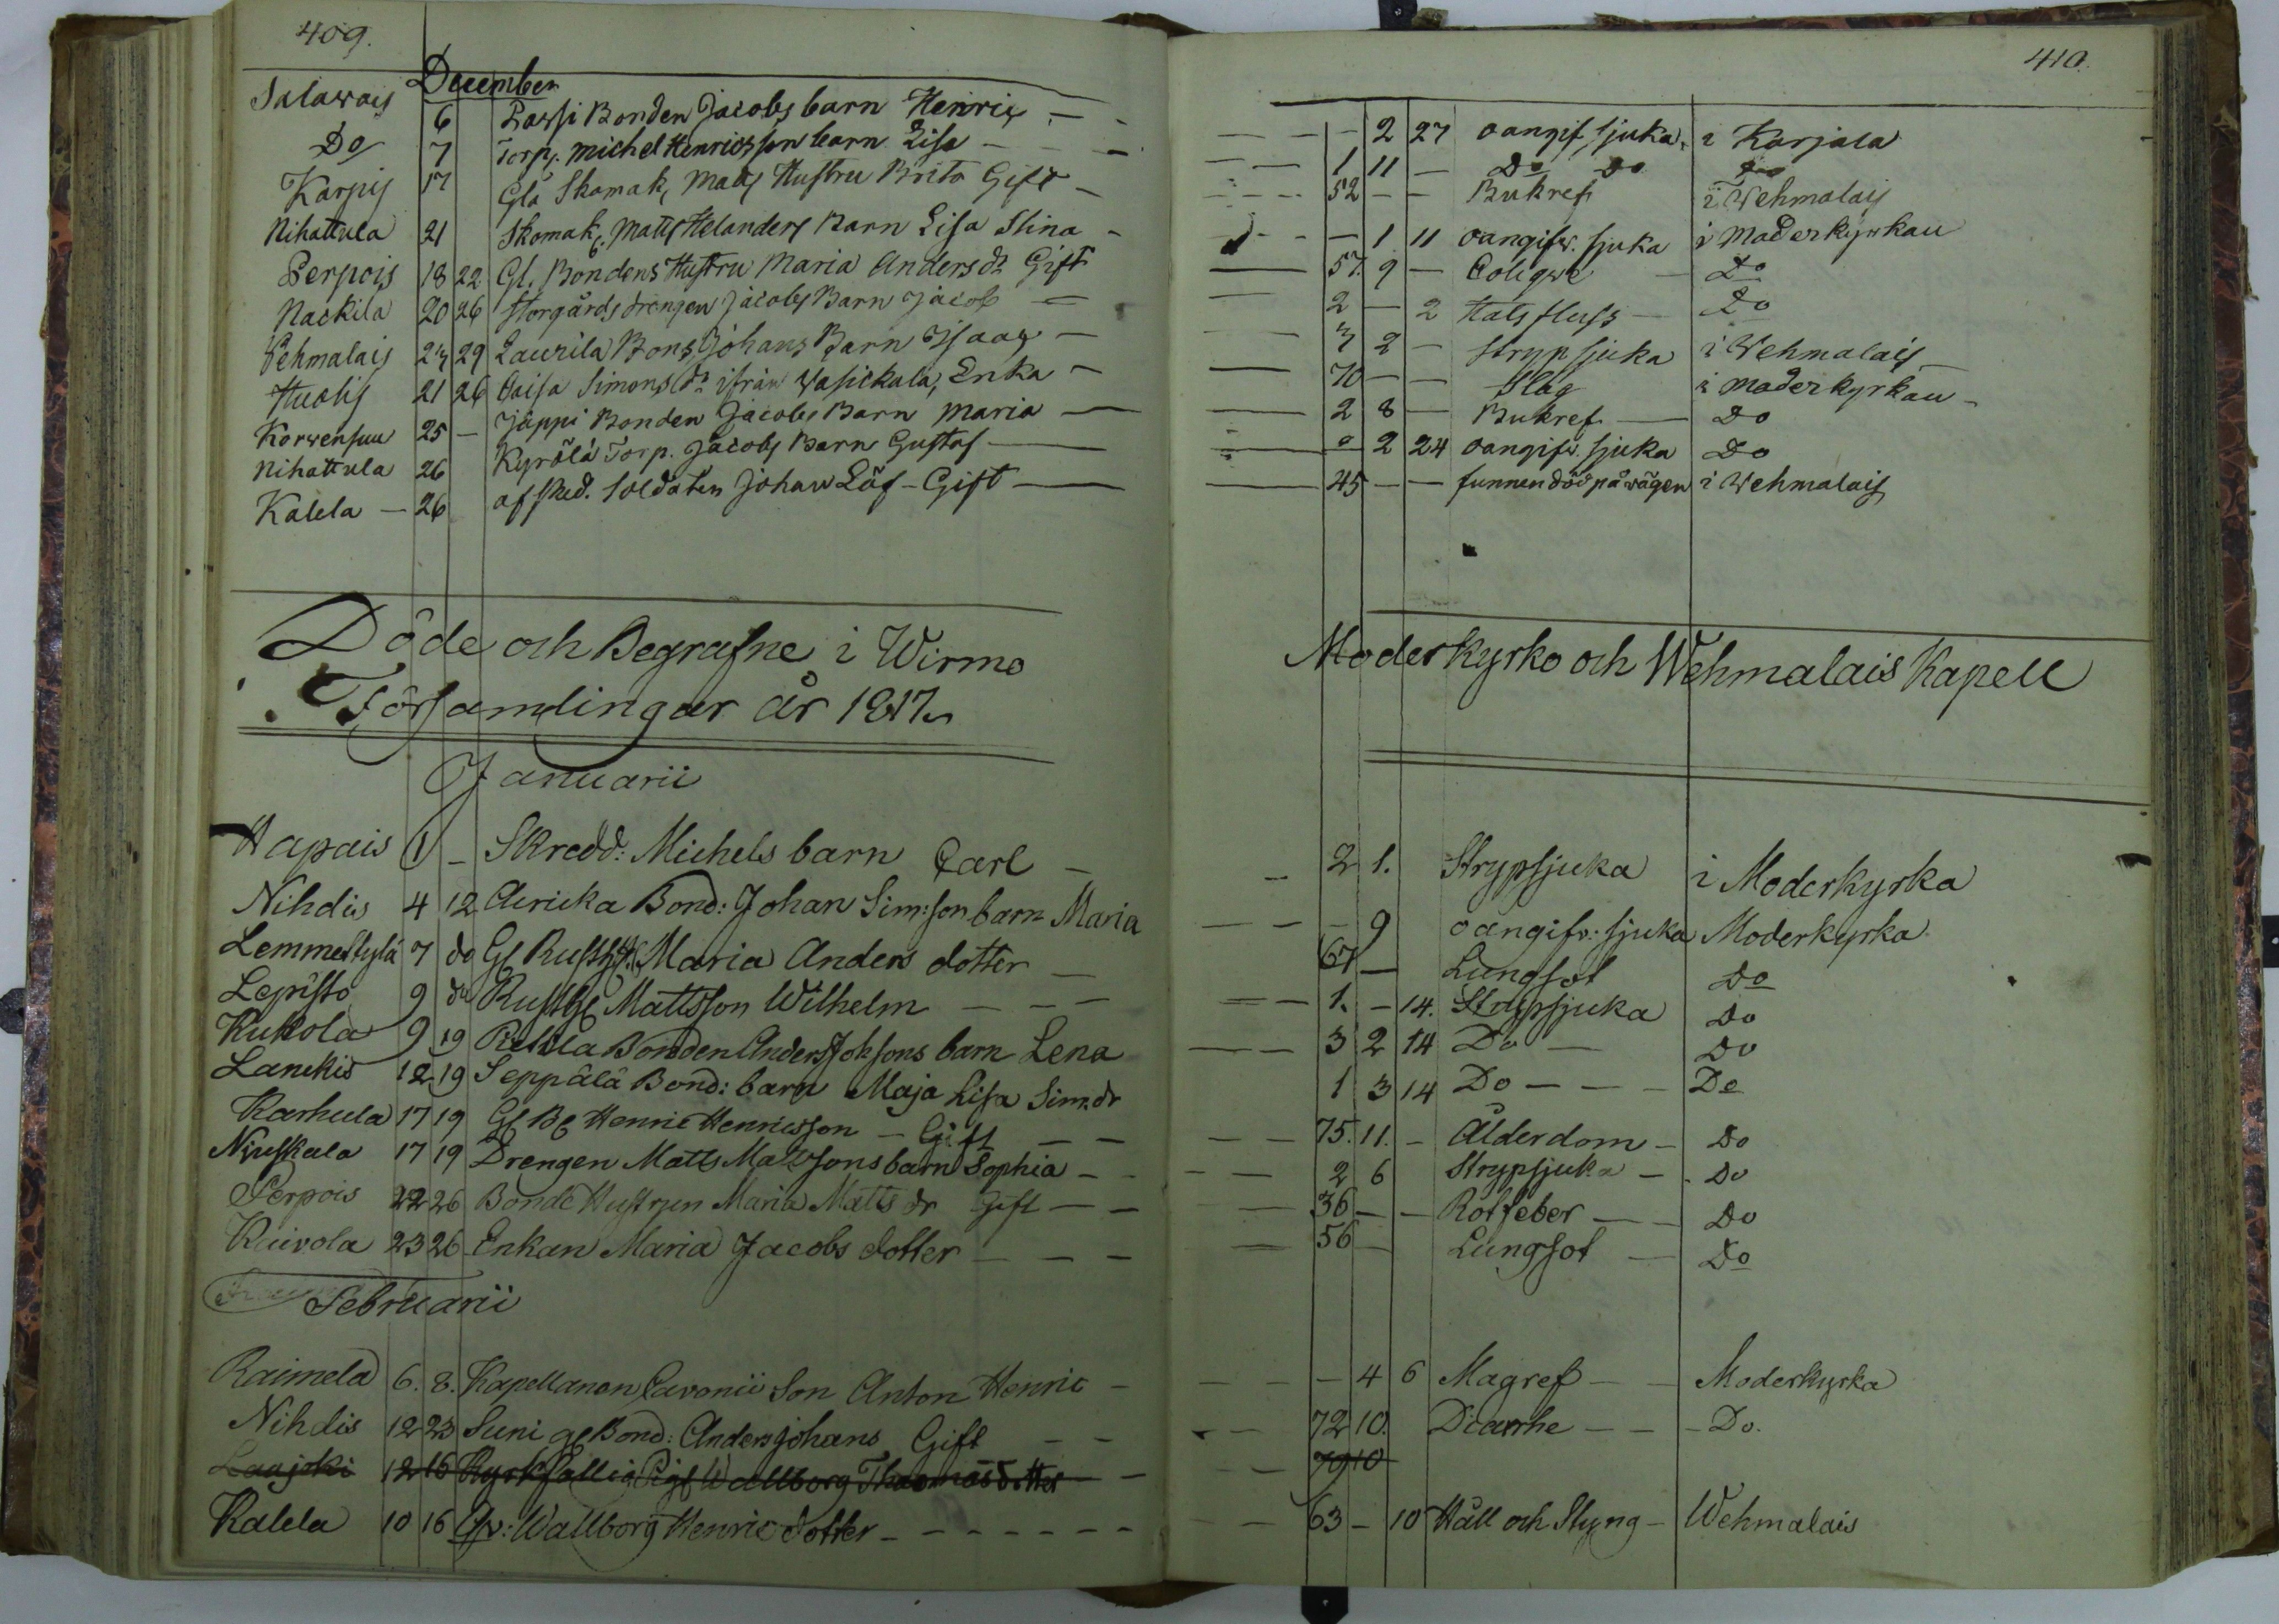 409.
December
Salawais 6 Bonden Jacobs barn Henric
Do 7 Torp. Michel Henricsson barn Lisa
Karpis 17 Gla Skomak. Matts Hustru Brita Gift
Nihattula 21 Skomak. Matts Helanders Barn Lisa Stina
Perpois 18 22 Gl. Bondens Hustru Maria Anders dr Gift
Nackila 20 26 Storgårds drängen Jacobs Barn Jacob
Vehmalais 27 29 Laurila Bons Johans Barn Isaac
Huolis 21 26 Caisa Simons dr ifrån Wasickala, Enka
Korwensuu 25 — Jäppi Bonden Jacobs Barn Maria
Nihattula 26 Kyrölä Torp. Jacobs Barn Gustaf
Kalela — 26 afsked. Soldaten Johan Löf — Gift
Döde och Begrafne i Wirmo
Församlingar år 1817.
Januarii
Hapais 1 — Skredd: Michels barn Carl
Nihdis 4 12 Bond: Johan Sim:son barn Maria
Lemmes 7 do Gl Maria Anders dotter
Lepistö 9 do Rusth Mattsson Wilhelm
Kukola 9 19 Bonden Anders barn Lena
Lanckis 12 19 Seppälä Bond: barn Maja Lisa Sim. dr
Karhula 17 19 Gl Bd Henric Henricsson — Gift
17 19 Drengen Matts Mattsons barn Sophia
Perpois 22 26 Bonde Hustrun Maria Matts dr Gift
Kaivola 23 26 Enkan Maria Jacobs dotter
Februarii
Raimela 6. 8. Kapellanen Cavonii Son Anton Henric
Nihdis 12 23 Suni gl Bond: Anders Johans Gift
Laajoki 12 16 Kyrkfallig Pig Wallborg Thomas dotter
Kalela 10 16 Wallborg Henric dotter
410.
— 2 27 oangif sjuka, i Karjala
1 11 — Do Do Do
52 — — Bukref i Wehmalais
— 1 11 oangifv. sjuka i Moderkyrkan
57. 9 — Do
2 — 2 Halsfluss — Do
3 2 — Strypsjuka i Wehmalais
70 — — Slag i Moderkyrkan
2 8 — Bukref — Do
— 2 24 oangifv. sjuka Do
45 — — funnen död på wägen i Wehmalais
Moderkyrko och Wehmalais Kapell
2 1. Strypsjuka i Moderkyrka
— 9 oangifv: sjuka Moderkyrka
67 — Lungsot Do
1. — 14. Strypsjuka Do
3 2 14 Do — Do
1 3 14 Do — — Do
75. 11. — Ålderdom — Do
2 6 Strypsjuka — Do
36 — — Rötfeber — Do
56 — Lungsot — Do
— 4 6 Magref — Moderkyrka
72 10. Diarrhe — — Do.
79 10
63 — 10 Håll och Styng — Wehmalais